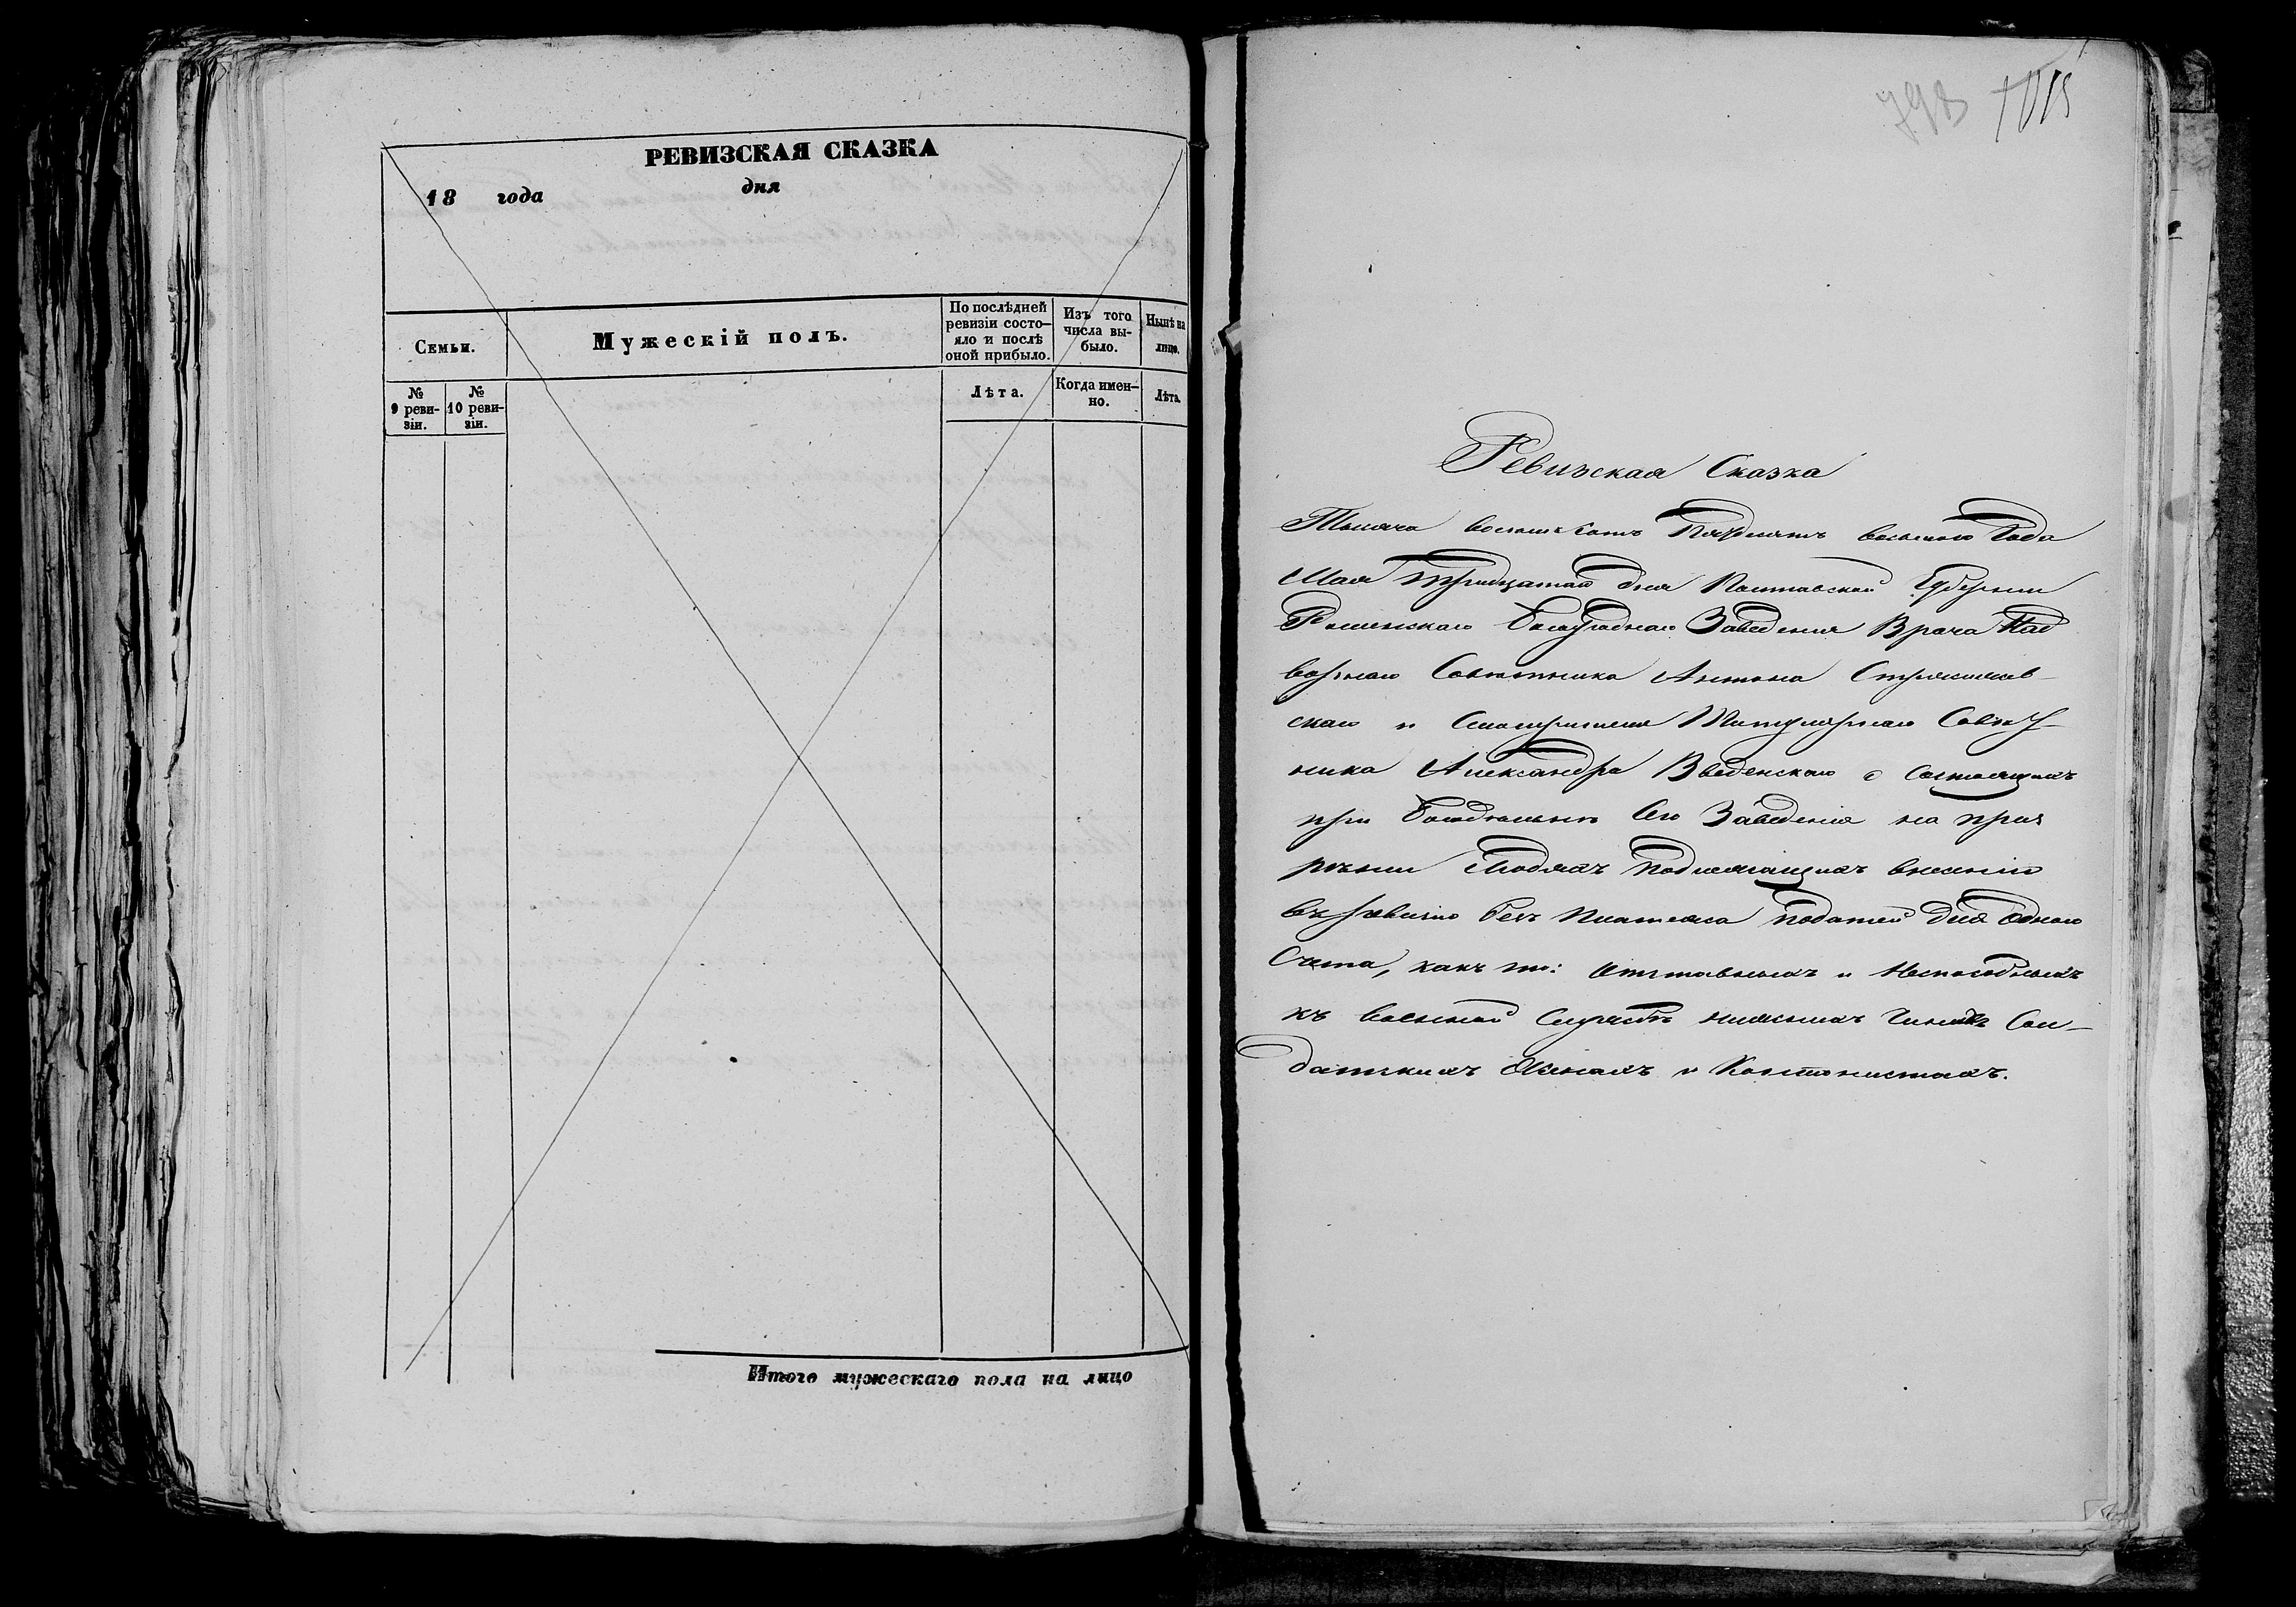 РЕВИЗСКАЯ СКАЗКА
18 года дня
Семьи.
Мужескій полъ.
По послѣдней ревизіи состо-яло и послѣ оной прибыло.
Изъ того числа вы-было.
Нынѣ на лицо.
№ 9 реви-зіи.
№ 10 реви-зіи.
Лѣта.
Когда имен-но.
Лѣта.
Итого мужескаго пола на лицо
798 1015
Ревизская Сказка
Тысяча восемьсотъ Пятдесятъ восьмого Года
Мая тридцатаго дня Полтавской Губерніи
Роменскаго Богоугоднаго Заведенія Врача Над
ворнаго Совѣтника Антона
скаго и Смотрителя Титулярнаго Совѣт
ника Александра Введенскаго о состоящихъ
при Богодѣльнѣ сего Заведенія на приз
рѣніи Людяхъ подлежащихъ внесенію
въ ревизію безъ платежа податей для одного
Счета, какъ то: отставныхъ и неспособныхъ
къ военной Службѣ нижнихъ Чиновъ Сол-
датскихъ Женахъ и Кантонистахъ.